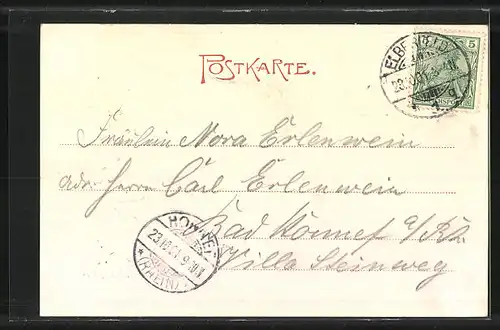 ELBERFELD
23.10.01
1 g
5
POSTKARTE.
Fräulein Nora Erlenwein
Adr. Herrn Carl Erlenwein
Bad Honnef a/Rh.
Villa Steinweg
HONNEF
23.10.01
(RHEIN)